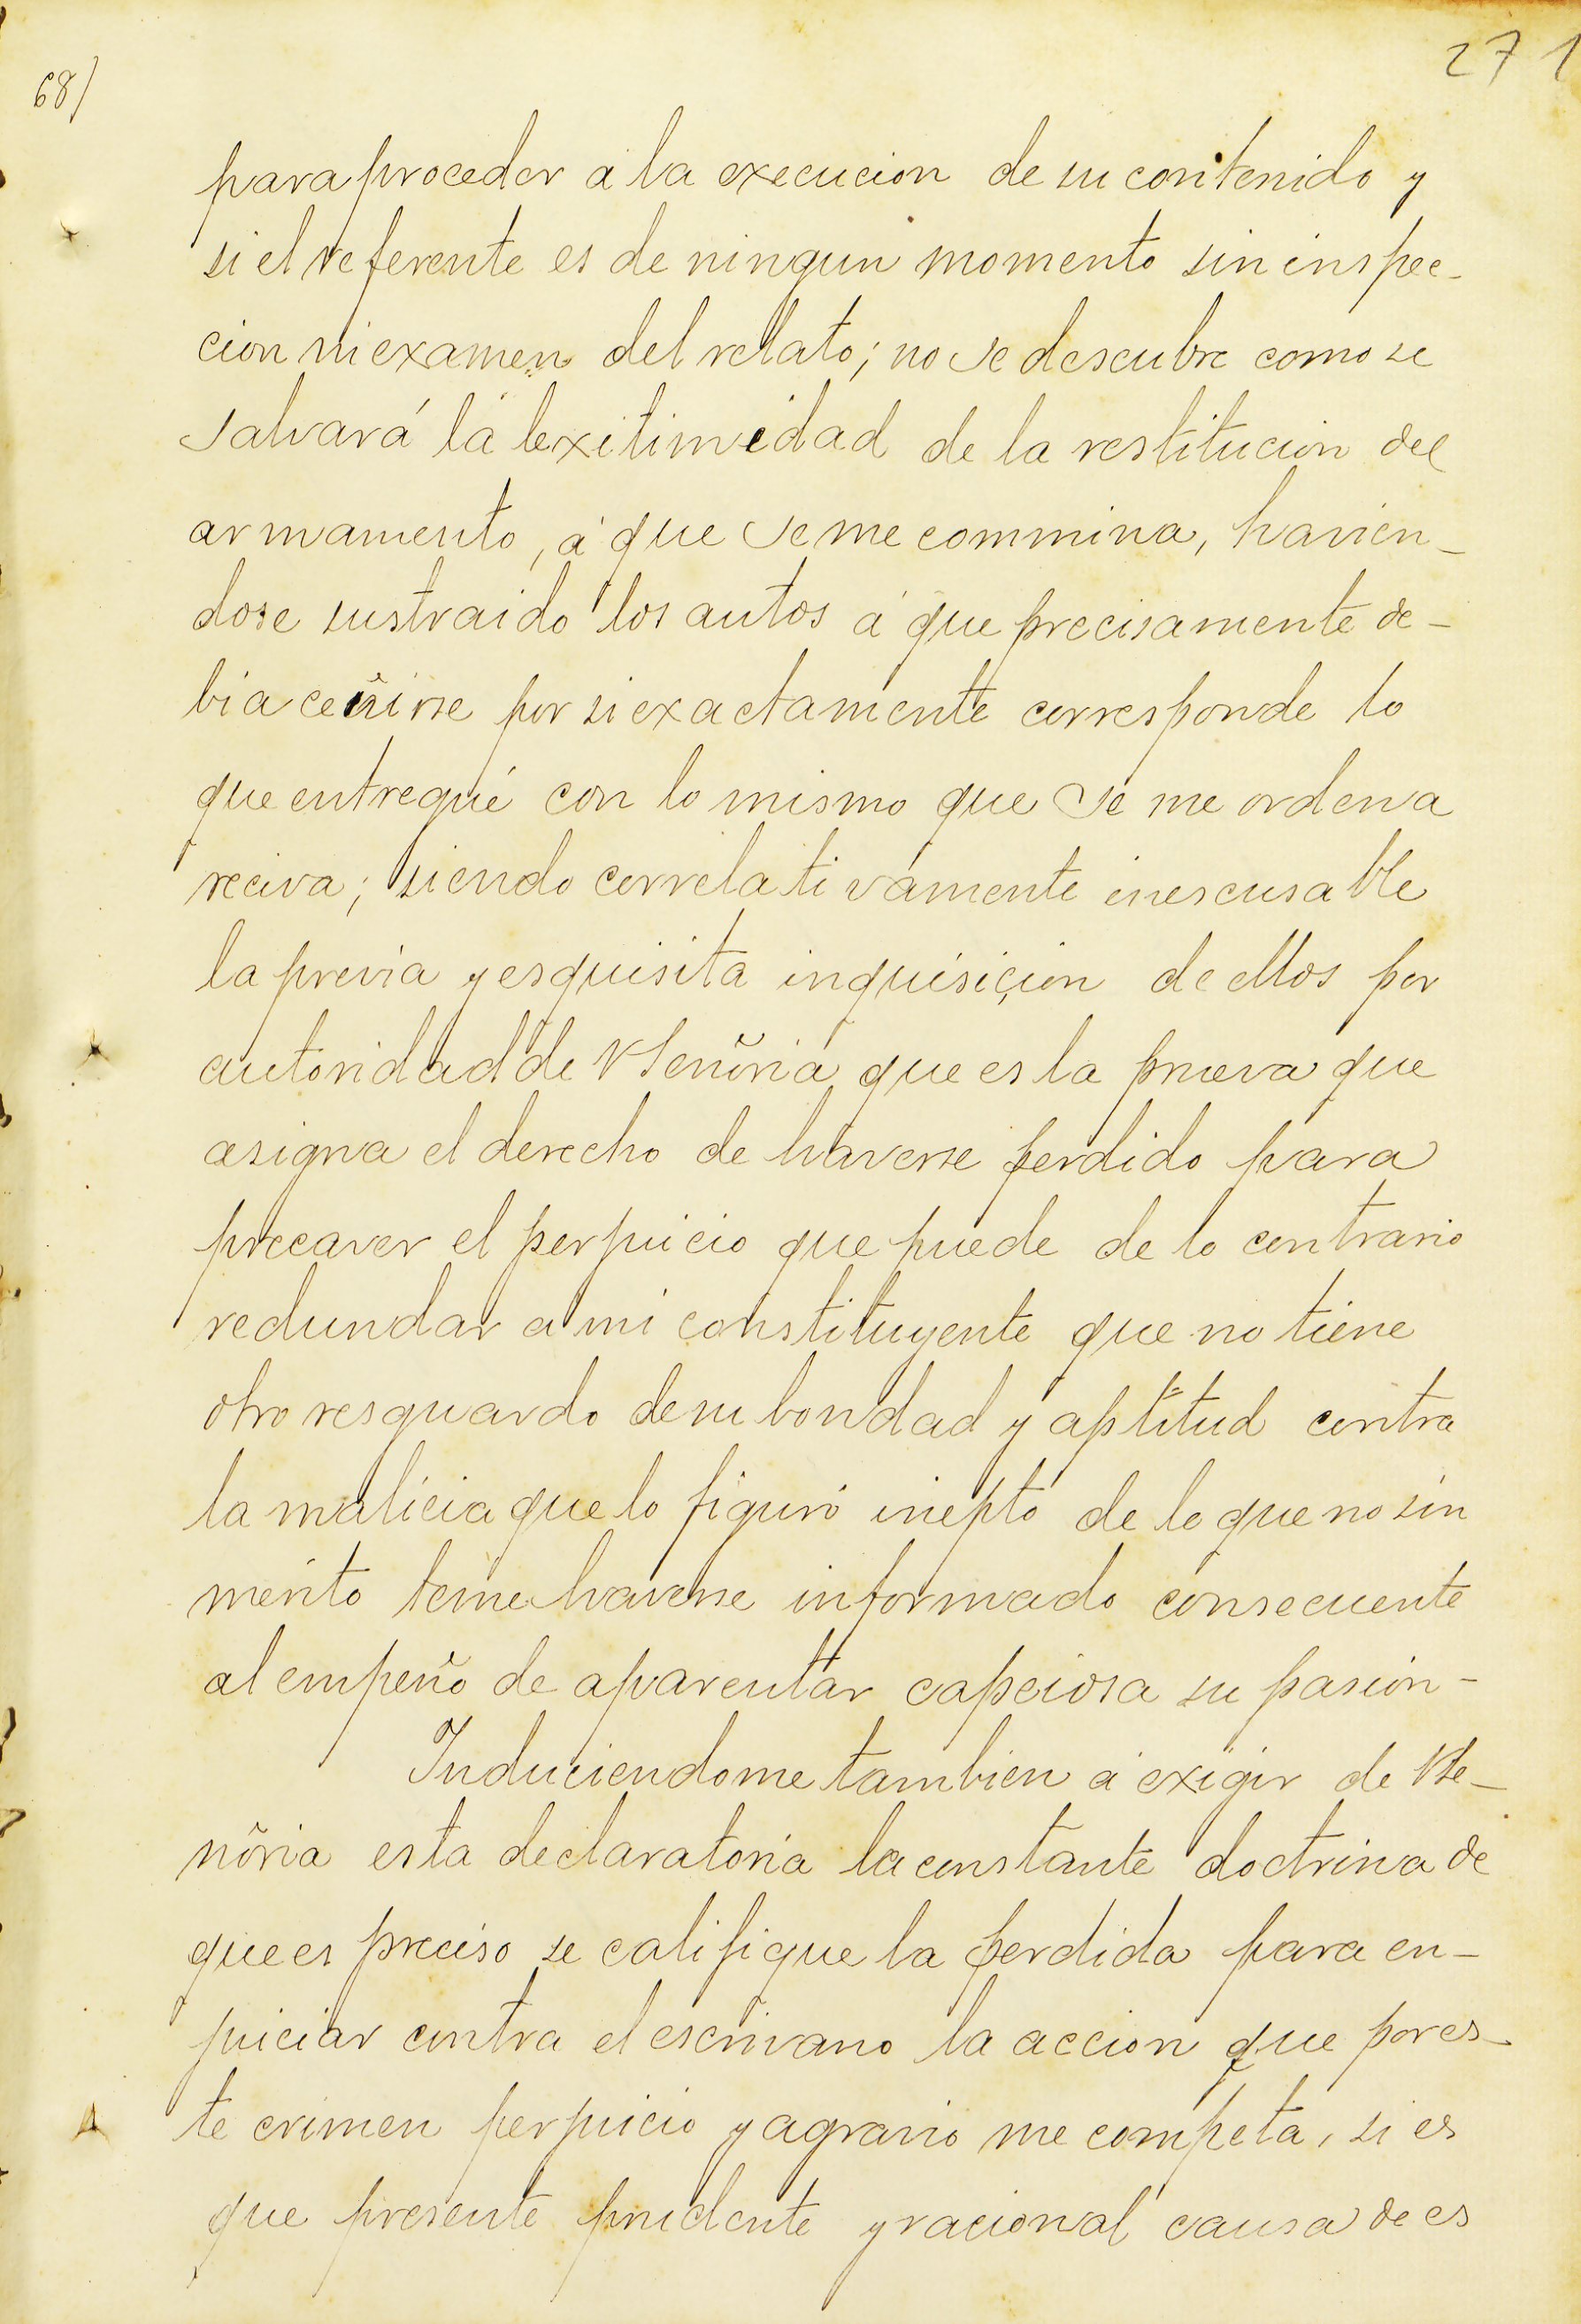 271
68)
para proceder a la execucion de su contenido y
si el referente es de ningun momento sin inspec-
cion ni examen del relato; no se descubre como se
salvará la lexitimidad de la restitucion del
armamento, á que se me commina, havien-
dose sustraido los autos á que precisamente de-
bia ceñirse por si exactamente corresponde lo
que entregué con lo mismo que se me ordena
reciva; siendo correlativamente inescusable
la previa y esquisita inquisicion de ellos por
autoridad de VSeñoria que es la prueva que
asigna el derecho de haverse perdido para
precaver el perjuicio que puede de lo contrario
redundar a mi constituyente que no tiene
otro resguardo de su bondad y aptitud contra
la malicia que lo figuró inepto de lo que no sin
merito teme haverse informado consecuente
al empeño de aparentar capciosa su pasion-
Induciendome tambien á exigir de VSe-
ñoria esta declaratoria la constante doctrina de
que es preciso se califique la perdida para en-
juiciar contra el escrivano la accion que por es-
te crimen perjuicio y agravio me competa, si es
que presente prudente y racional causa de es